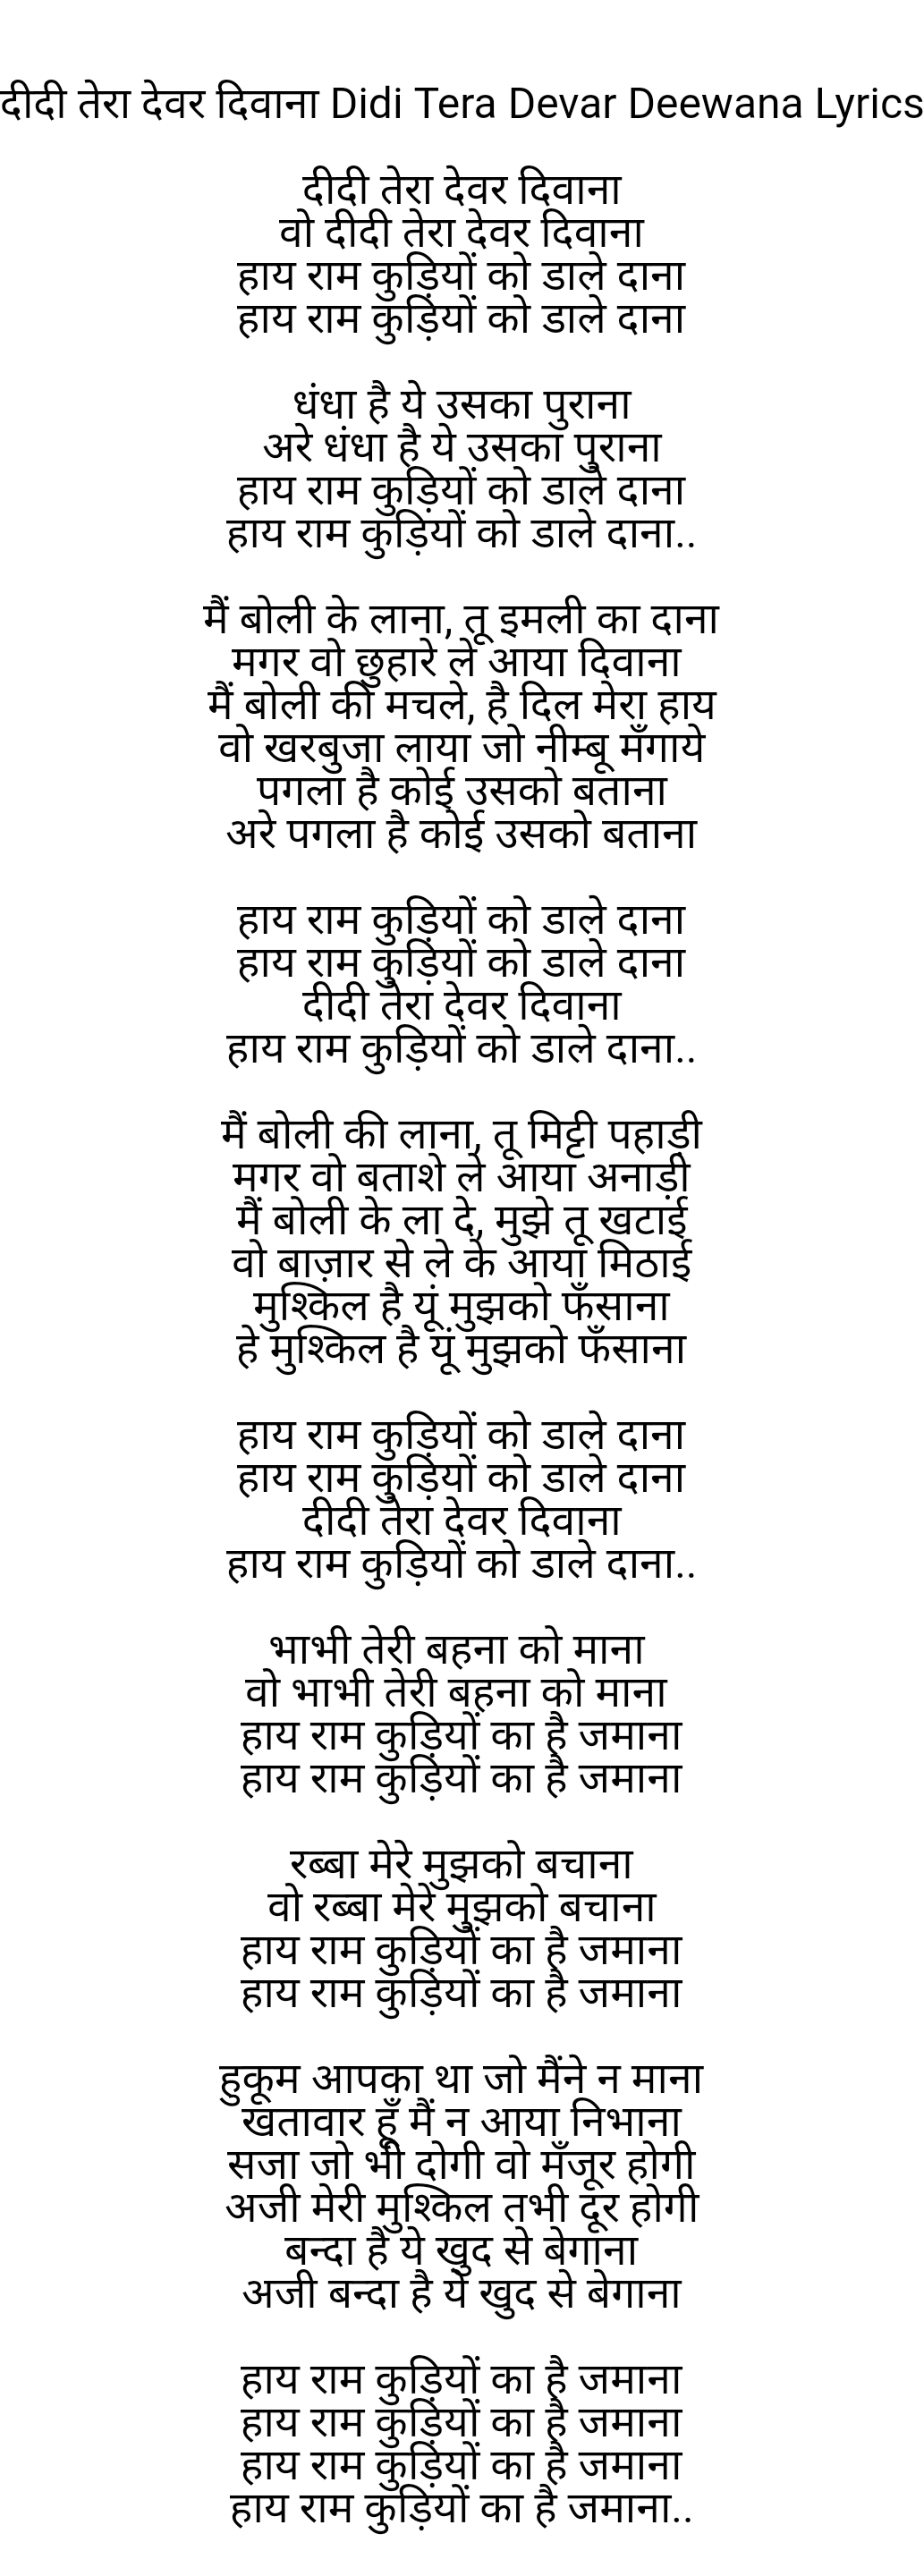 दीदी तेरा देवर दिवाना Didi Tera Devar Deewana Lyrics
दीदी तेरा देवर दिवाना
वो दीदी तेरा देवर दिवाना
हाय राम कुड़ियों को डाले दाना
हाय राम कुड़ियों को डाले दाना
धंधा है ये उसका पुराना
अरे धंधा है ये उसका पुराना
हाय राम कुड़ियों को डाले दाना
हाय राम कुड़ियों को डाले दाना..
मैं बोली के लाना, तू इमली का दाना
मगर वो छुहारे ले आया दिवाना
मैं बोली की मचले, है दिल मेरा हाय
वो खरबुजा लाया जो नीम्बू मँगाये
पगला है कोई उसको बताना
अरे पगला है कोई उसको बताना
हाय राम कुड़ियों को डाले दाना
हाय राम कुड़ियों को डाले दाना
दीदी तेरा देवर दिवाना
हाय राम कुड़ियों को डाले दाना..
मैं बोली की लाना, तू मिट्टी पहाड़ी
मगर वो बताशे ले आया अनाड़ी
मैं बोली के ला दे, मुझे तू खटाई
वो बाज़ार से ले के आया मिठाई
मुश्किल है यूं मुझको फँसाना
हे मुश्किल है यूं मुझको फँसाना
हाय राम कुड़ियों को डाले दाना
हाय राम कुड़ियों को डाले दाना
दीदी तेरा देवर दिवाना
हाय राम कुड़ियों को डाले दाना..
भाभी तेरी बहना को माना
वो भाभी तेरी बहना को माना
हाय राम कुड़ियों का है जमाना
हाय राम कुड़ियों का है जमाना
रब्बा मेरे मुझको बचाना
वो रब्बा मेरे मुझको बचाना
हाय राम कुड़ियों का है जमाना
हाय राम कुड़ियों का है जमाना
हुकूम आपका था जो मैंने न माना
खतावार हूँ मैं न आया निभाना
सजा जो भी दोगी वो मँजूर होगी
अजी मेरी मुश्किल तभी दूर होगी
बन्दा है ये खुद से बेगाना
अजी बन्दा है ये खुद से बेगाना
हाय राम कुड़ियों का है जमाना
हाय राम कुड़ियों का है जमाना
हाय राम कुड़ियों का है जमाना
हाय राम कुड़ियों का है जमाना..